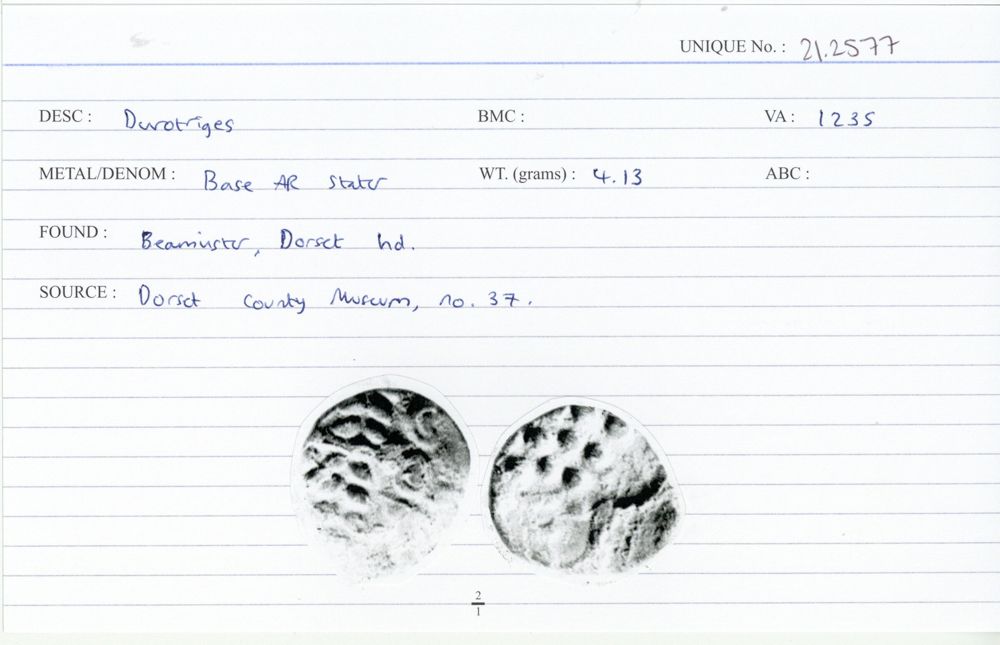 UNIQUE No. : 21.2577
DESC : Durotriges BMC : VA : 1235
METAL/DENOM : Base AR Stater WT. (grams) : 4.13 ABC :
FOUND : Beaminster, Dorset hd.
SOURCE : Dorset County Museum, no. 37.
2
1